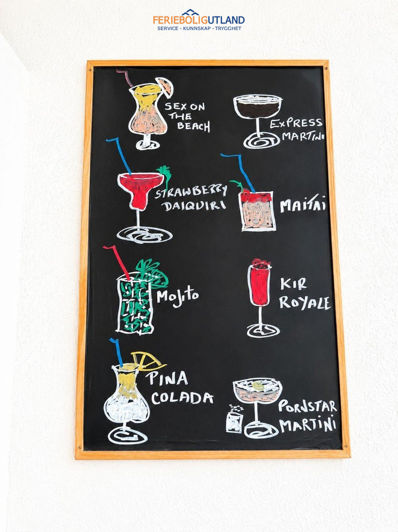 FERIEBOLIGUTLAND
SERVICE - KUNNSKAP - TRYGGHET
SEX ON
THE
BEACH
EXPRESS
MARTINI
STRAWBERRY
DAIQUIRI
MAITAI
Mojito
KIR
ROYALE
PINA
COLADA
PORNSTAR
MARTINI